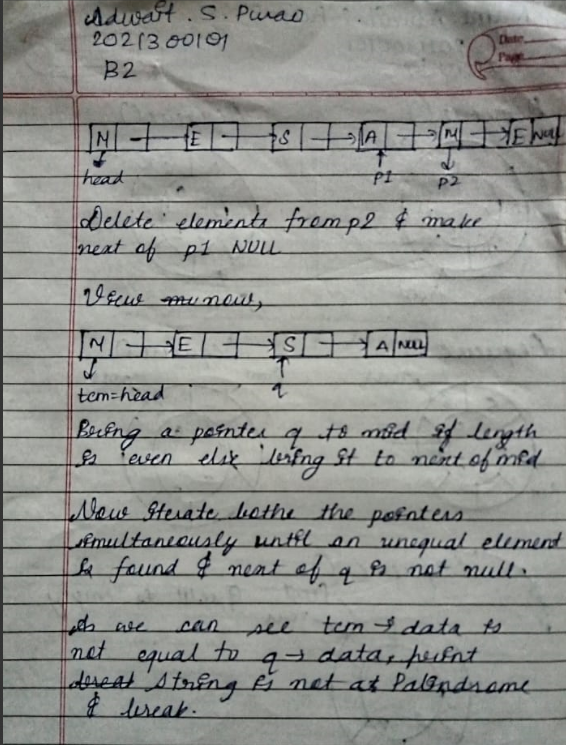 Adwait . S. Purao
2021300101
B2
Date
Page
M E S A M E NULL
head p1 p2
Delete elements from p2 & make
next of p1 NULL
View now,
M E S A NULL
tem=head q
Bring a pointer q to mid if length
is even else bring it to next of mid
Now iterate bothe the pointers
simultaneously until an unequal element
is found & next of q is not null.
As we can see tem → data is
not equal to q → data, print
string is not as Palindrome
& break.